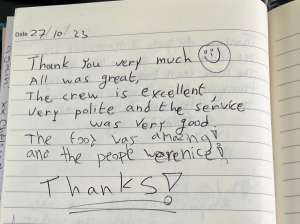 Date 27/10/23
Thank you very much
All was great,
The crew is excellent,
Very polite and the service
was very good,
The food was amazing!
and the peopl were nice!
Thanks!